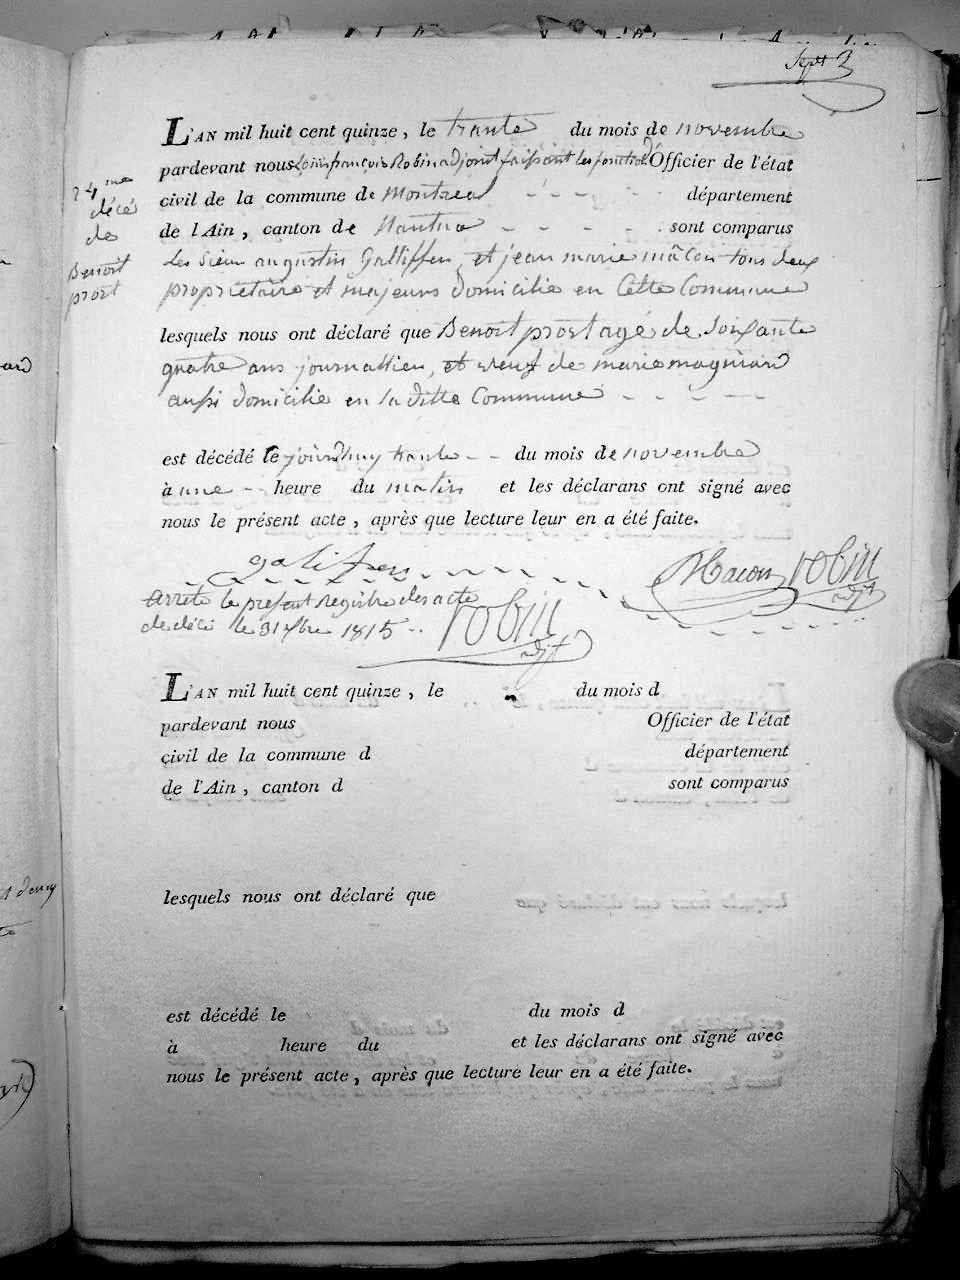 Sept 2
L'AN mil huit cent quinze, le trante du mois de novembre
pardevant nous Louis françois Robin adjoint faissant les fonction d'Officier de l'état
civil de la commune de Montreal département
de l'Ain, canton de Nantua sont comparus
Les Sieur augustin Galliffen, et jean marie mâcon tous deux
propriétaire et majeurs domicilie en Cette Commune
lesquels nous ont déclaré que Benoit prost agé de Soixante
quatre ans journallieu, et veuf de marie magniard
aussi domicilie en la ditte Commune
est décédé le jourdhuy trante du mois de novembre
à une heure du matin et les déclarans ont signé avec
nous le présent acte, après que lecture leur en a été faite.
24me
décé
de
Benoit
prost
galifen Macon robin
adjt
Arrêté le present registre des acte
de décé le 31 xbre 1815 robin
adjt
L'AN mil huit cent quinze, le du mois d
pardevant nous Officier de l'état
civil de la commune d département
de l'Ain, canton d sont comparus
lesquels nous ont déclaré que
est décédé le du mois d
à heure du et les déclarans ont signé avec
nous le présent acte, après que lecture leur en a été faite.